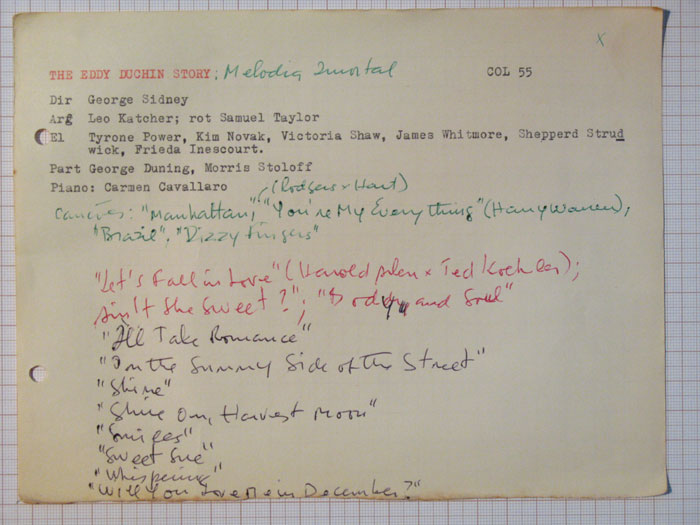 x
THE EDDY DUCHIN STORY; Melodia Imortal COL 55
Dir George Sidney
Arg Leo Katcher; rot Samuel Taylor
El Tyrone Power, Kim Novak, Victoria Shaw, James Whitmore, Shepperd Strud
wick, Frieda Inescourt.
Part George Duning, Morris Stoloff
Piano: Carmen Cavallaro
(Rodgers x Hart)
Canções: "Manhattan", "You're My Everything" (Harry Warren);
"Brazil". "Dizzy Fingers"
"Let's Fall in Love" (Harold Arlen x Ted Koehler);
Ain't She Sweet?"; "Body and Soul"
"I'll Take Romance"
"On the Sunny Side of the Street"
"Shine"
"Shine On, Harvest Moon"
"Smiles"
"Sweet Sue"
"Whispering"
"Will You Love Me in December?"